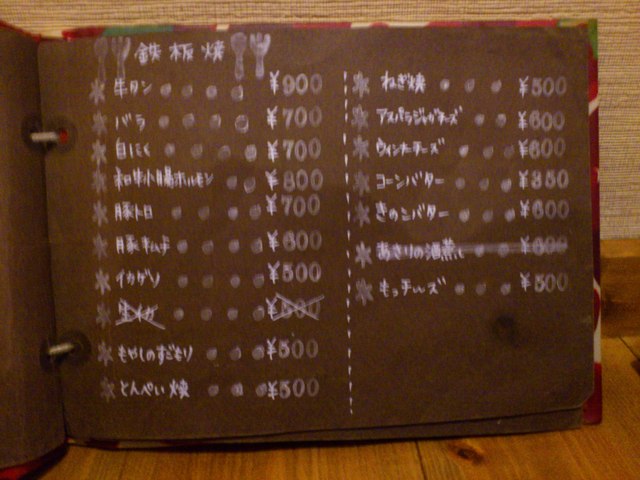 鉄板焼
牛タン ¥900
バラ ¥700
白にく ¥700
和牛小腸ホルモン ¥800
豚トロ ¥700
豚キムチ ¥600
イカゲソ ¥500
生イカ
もやしのすごもり ¥500
とんぺい焼 ¥500
ねぎ焼 ¥500
アスパラジャガチーズ ¥600
ウィンナーチーズ ¥600
コーンバター ¥350
きのこバター ¥600
あさりの酒蒸し ¥600
もっチーズ ¥500